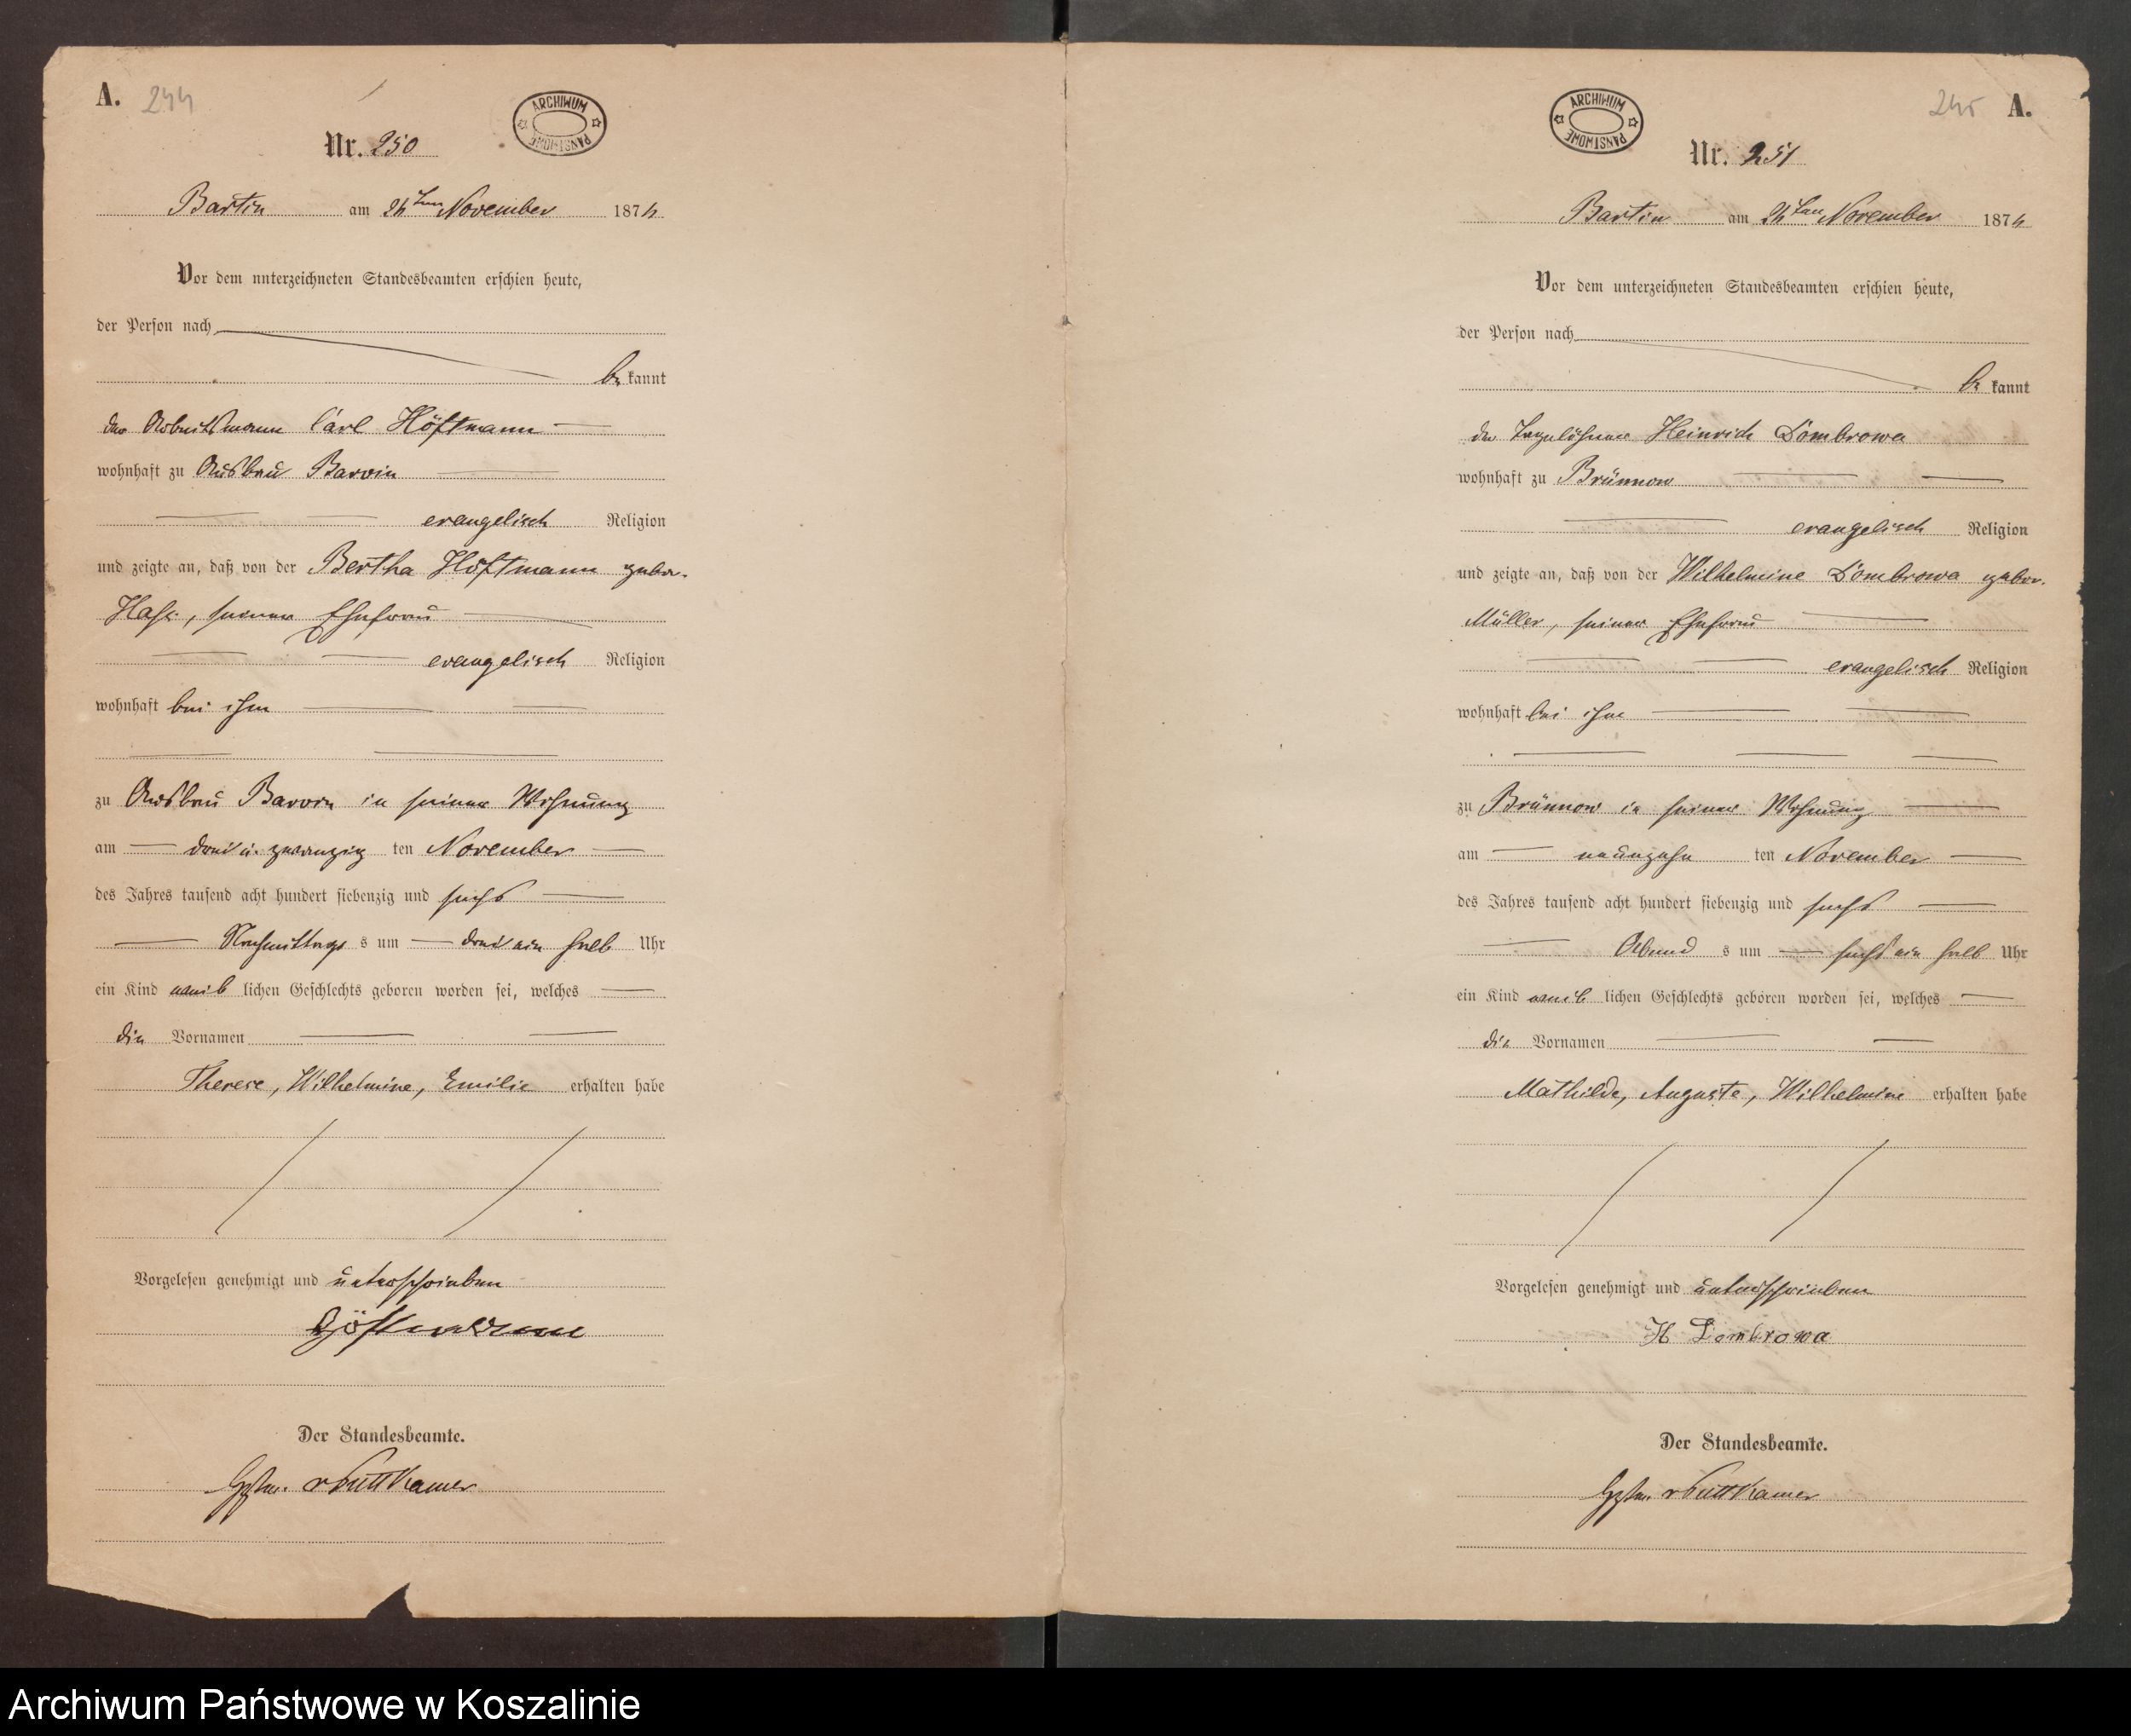 A. 244
ARCHIWUM PAŃSTWOWE
Nr. 250
Bartin am 26ten November 1876
Vor dem unterzeichneten Standesbeamten erschien heute,
der Person nach
be kannt
der Arbeitsmann Carl Höftmann
wohnhaft zu Ausbau Barvin
evangelisch Religion
und zeigte an, daß von der Bertha Höftmann gebor.
Hasse, seiner Ehefrau
evangelisch Religion
wohnhaft bei ihm
zu Ausbau Barvin in seiner Wohnung
am drei u. zwanzig ten November
des Jahres tausend acht hundert siebenzig und sechs
Nachmittags s um drei ein halb Uhr
ein Kind weib lichen Geschlechts geboren worden sei, welches
die Vornamen
Therese, Wilhelmine, Emilie erhalten habe
Vorgelesen genehmigt und unterschrieben
Höftmann
Der Standesbeamte.
vPuttkamer
245 A.
ARCHIWUM PAŃSTWOWE
Nr. 251
Bartin am 26ten November 1876
Vor dem unterzeichneten Standesbeamten erschien heute,
der Person nach
be kannt
der Tagelöhner Heinrich Dombrowa
wohnhaft zu Brünnow
evangelisch Religion
und zeigte an, daß von der Wilhelmine Dombrowa gebor.
Müller, seiner Ehefrau
evangelisch Religion
wohnhaft bei ihm
zu Brünnow in seiner Wohnung
am neunzehn ten November
des Jahres tausend acht hundert siebenzig und sechs
Abend s um sechs ein halb Uhr
ein Kind weib lichen Geschlechts geboren worden sei, welches
die Vornamen
Mathilde, Auguste, Wilhelmine erhalten habe
Vorgelesen genehmigt und unterschrieben
H Dombrowa
Der Standesbeamte.
vPuttkamer
Archiwum Państwowe w Koszalinie